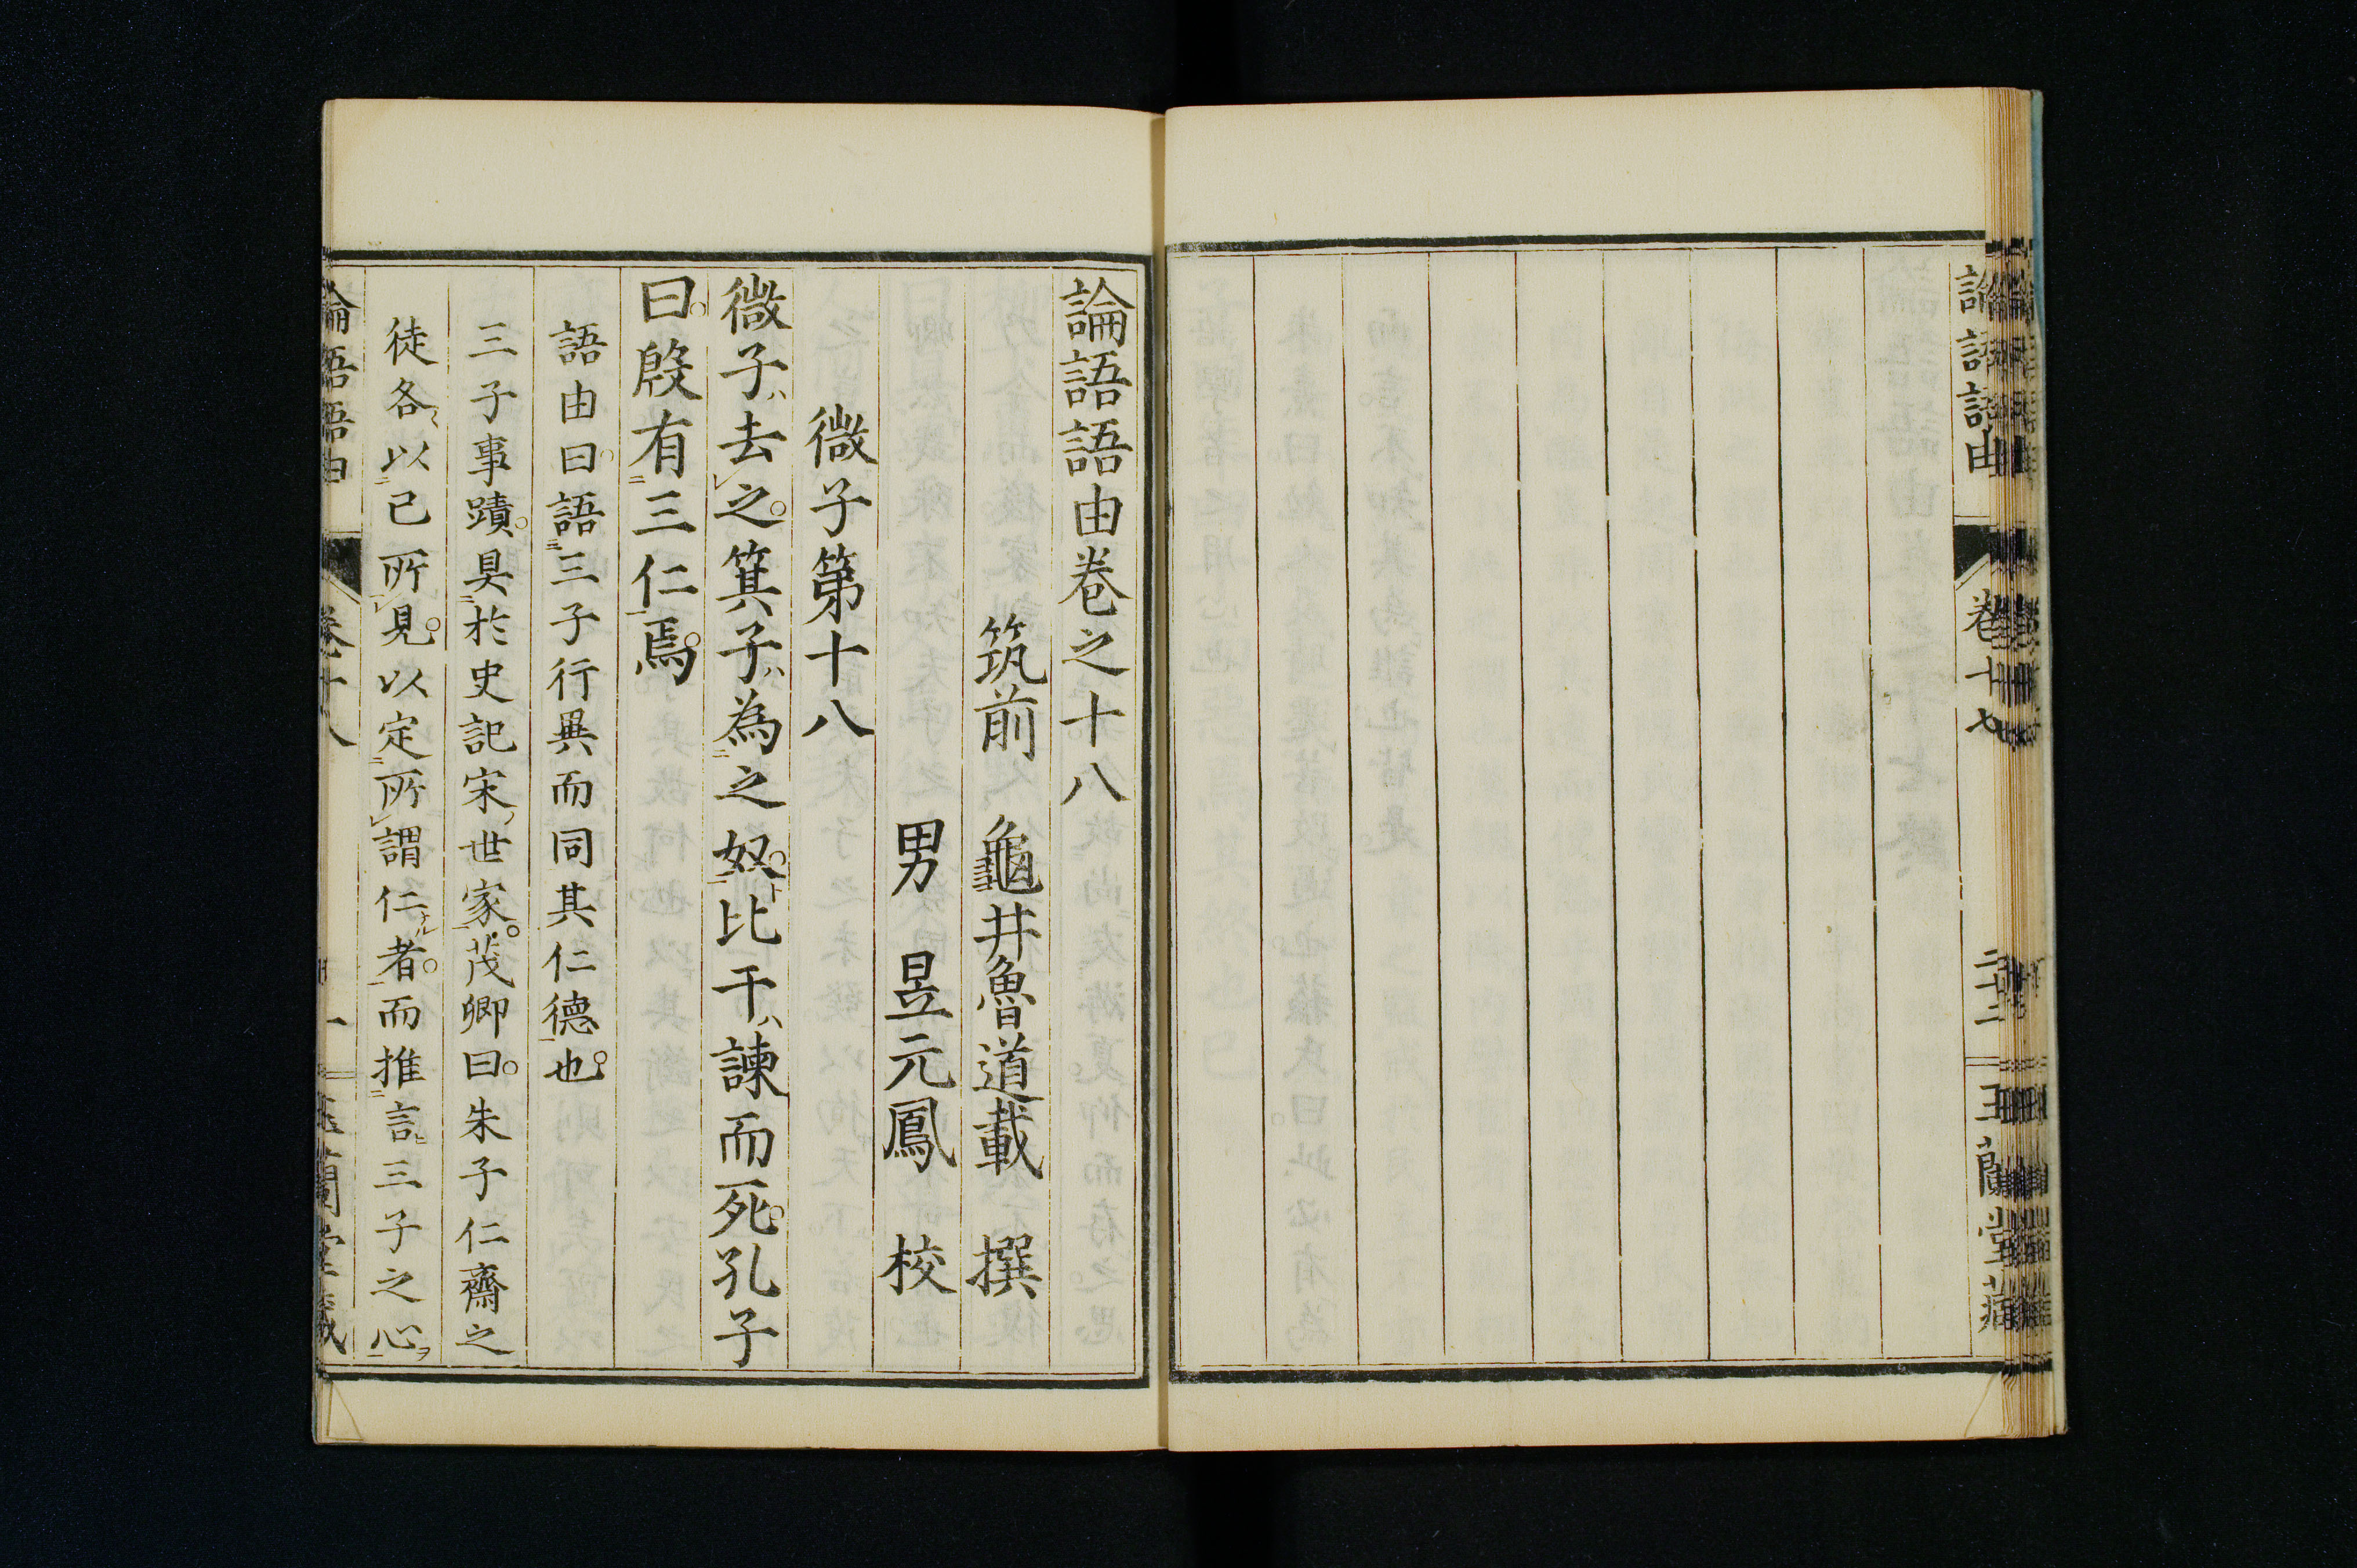 論語語由
卷十七
論語語由卷之十八
筑前 龜井魯道載 撰
男 昱元鳳 校
微子第十八
微子ハ去之。箕子ハ為之奴。ト比干ハ諫而死。孔子
曰。殷有三仁焉。
語由曰。語三子行異而同其仁德也。
三子事蹟。具於史記宋ノ世家。茂卿曰。朱子仁齋之
徒各〻以己所見。以定所謂仁ナル者。而推言三子之心ヲ
論語語由
卷十八
一
玉蘭堂藏